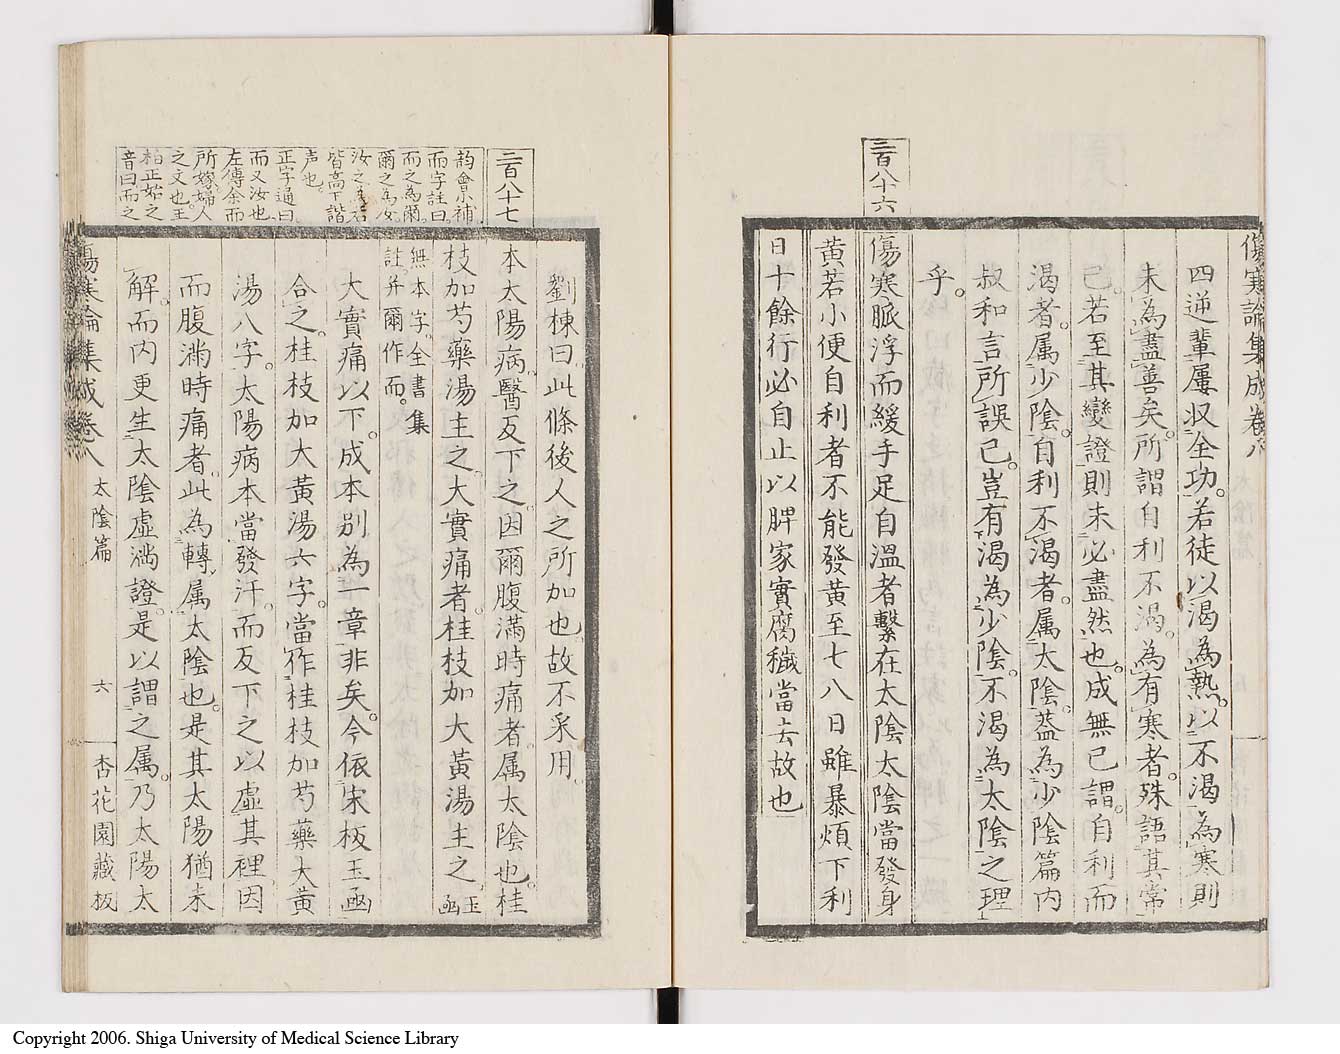 傷寒論集成卷八
四逆輩屢収全功。若徒以渴為熱。以不渴為寒則
未為盡善矣。所謂自利不渴。為有寒者。殊語其常
已。若至其變證則未必盡然也。成無已謂。自利而
渴者。属少陰。自利不渴者。属太陰。葢為少陰篇内
叔和言所誤已。豈有渴為少陰。不渴為太陰之理
乎。
三百八十六
傷寒脈浮而緩手足自溫者繫在太陰太陰當發身
黃若小便自利者不能發黃至七八日雖暴煩下利
日十餘行必自止以脾家實腐穢當去故也
劉棟曰。此條後人之所加也。故不采用。
二百八十七
本太陽病。醫反下之。因爾腹滿時痛者。属太陰也。桂
枝加芍藥湯主之。大實痛者。桂枝加大黃湯主之。玉函
無本字。全書集
註。并爾作而。
大實痛以下。成本別為一章非矣。今依宋板玉函
合之。桂枝加大黃湯六字。當作桂枝加芍藥大黃
湯八字。太陽病本當發汗。而反下之以虛其裡因
而腹滿時痛者。此為轉属太陰也。是其太陽猶未
解。而内更生太陰虛滿證。是以謂之属。乃太陽太
韵會小補
而字註曰。
而之為爾。
爾之為女
汝之為若
皆高下諧
声也。
正字通曰
而又汝也
左傳余而
所嫁婦人
之文也。王
柏正始之
音曰而之
傷寒論集成卷八
太陰篇
六
杏花園藏板
Copyright 2006. Shiga University of Medical Science Library